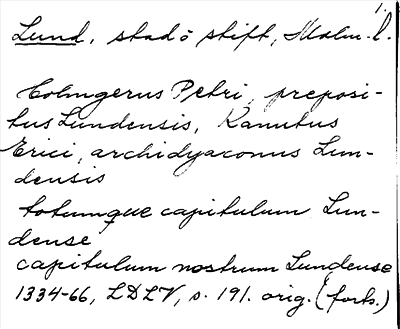 1.
Lund, stad o stift, Malm. l.
Holmgerus Petri, preposi-
tus Lundensis, Kanutus
Erici, archidyaconus Lun-
densis
totumque capitulum Lun-
dense
capitulum nostrum Lundense
1334-66, LDLV, s. 191. orig. (forts.)